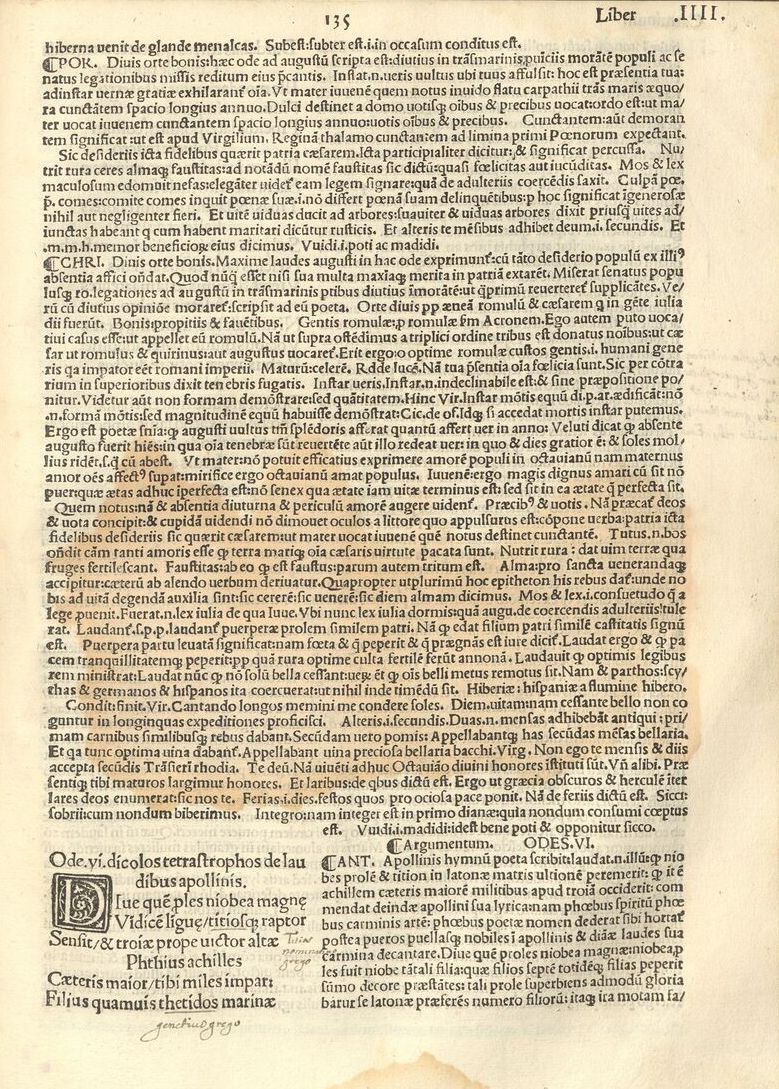 135
Liber .IIII.
hiberna uenit de glande menalcas. Subest:subter est.i.in occasum conditus est.
¶POR. Diuis orte bonis:hæc ode ad augustũ scripta est:diutius in trãsmarinis,puĩciis morãtẽ populi ac se
natus legationibus missis reditum eius p̃cantis. Instar.n.ueris uultus ubi tuus affulsit: hoc est præsentia tua:
adinstar uernæ gratiæ exhilarant̃ oĩa. Vt mater iuuenẽ quem notus inuido flatu carpathii trãs maris æquo/
ra cunctãtem spacio longius annuo. Dulci destinet a domo uotisq; oĩbus & precibus uocat:ordo est:ut ma/
ter uocat iuuenem cunctantem spacio longius annuo:uotis oĩbus & precibus. Cunctantem:aũt demoran
tem significat:ut est apud Virgilium. Reginã thalamo cunctantem ad limina primi Pœnorum expectant.
Sic desideriis icta fidelibus quærit patria cæsarem. Icta participialiter dicitur:& significat percussa. Nu/
trit rura ceres almaq; faustitas:ad notãdũ nomẽ faustitas sic dictũ:quasi fœlicitas aut iucũditas. Mos & lex
maculosum edomuit nefas:eleganter uidet̃ eam legem signare:quã de adulteriis coercẽdis saxit. Culpã pœ.
p̃. comes:comite comes inquit pœnæ suæ.i.nõ differt pœnã suam delinquẽtibus:p hoc significat ĩgenerosæ
nihil aut negligenter fieri. Et uitẽ uiduas ducit ad arbores:suauiter & uiduas arbores dixit priusq̃ uites ad/
iunctas habeant q cum habent maritari dicũtur rusticis. Et alteris te mẽsibus adhibet deum.i. secundis. Et
.m.m.h.memor beneficioꝝ eius dicimus. Vuidi.i.poti ac madidi.
¶CHRI. Diuis orte bonis. Maxime laudes augusti in hac ode exprimunt̃:cũ tãto desiderio populũ ex illiꝰ
absentia affici oñdat. Quod nũq̃ esset nisi sua multa maxiaq; merita in patriã extarẽt. Miserat senatus popu
lusq; ro.legationes ad augustũ in trãsmarinis ptibus diutius ĩmorãtẽ:ut q̃primũ reuerteret̃ supplicãtes. Ve/
rũ cũ diutius opiniõe moraret̃:scripsit ad eũ poeta. Orte diuis pp æneã romulũ & cæsarem q in gẽte iulia
dii fuerũt. Bonis:propitiis & fauẽtibus. Gentis romulæ:p romulæ fm Acronem. Ego autem puto uoca/
tiui casus esse:ut appellet eũ romulũ. Nã ut supra ostẽdimus a triplici ordine tribus est donatus noĩbus:ut cæ
sar ut romulus & quirinus:aut augustus uocaret̃. Erit ergo:o optime romulæ custos gentis.i. humani gene
ris qa impator eẽt romani imperii. Maturũ:celerẽ. Rdde lucẽ. Nã tua p̃sentia oĩa fœlicia sunt. Sic per cõtra
rium in superioribus dixit tenebris fugatis. Instar ueris. Instar.n.indeclinabile est:& sine præpositione po/
nitur. Videtur aũt non formam demõstrare:sed quãtitatem. Hinc Vir. Instar mõtis equũ di.p.ar.ædificãt:nõ
.n.formã mõtis:sed magnitudinẽ equũ habuisse demõstrat:Cic.de of. Idq; si accedat mortis instar putemus.
Ergo est poetæ sñia:ꝙ augusti uultus tm̃ splẽdoris afferat quantũ affert uer in anno: Veluti dicat ꝙ absente
augusto fuerit hiẽs:in qua oĩa tenebræ sũt reuertẽte aũt illo redeat uer: in quo & dies gratior ẽ: & soles mol/
lius ridẽt.s.q̃ cũ abest. Vt mater:nõ potuit efficatius exprimere amorẽ populi in octauianũ nam maternus
amor oẽs affectꝰ supat:mirifice ergo octauianũ amat populus. Iuuenẽ:ergo magis dignus amari cũ sit nõ
puer:quæ ætas adhuc ĩperfecta est:nõ senex qua ætate iam uitæ terminus est: sed sit in ea ætate q̃ perfecta sit.
Quem notus:nã & absentia diuturna & periculũ amorẽ augere uident̃. Præcibꝰ & uotis. Nã præcat̃ deos
& uota concipit:& cupidã uidendi nõ dimouet oculos a littore quo appulsurus est:cõpone uerba:patria icta
fidelibus desideriis sic quærit cæsarem:ut mater uocat iuuenẽ quẽ notus destinet cunctantẽ. Tutus.n.bos
oñdit cãm tanti amoris esse ꝙ terra mariq; oĩa cæsaris uirtute pacata sunt. Nutrit rura : dat uim terræ qua
fruges fertilescant. Faustitas:ab eo ꝙ est faustus:parum autem tritum est. Alma:pro sancta uenerandaq;
accipitur:cæterũ ab alendo uerbum deriuatur. Quapropter utplurimũ hoc epitheton his rebus dat̃:unde no
bis ad uitã degendã auxilia sint:sic cererẽ:sic uenerẽ:sic diem almam dicimus. Mos & lex.i.consuetudo q̃ a
lege ꝓuenit. Fuerat.n.lex iulia de qua Iuue. Vbi nunc lex iulia dormis:quã augu.de coercendis adulteriis:tule
rat. Laudant̃.s.p.p.laudant̃ puerperæ prolem similem patri. Nã ꝙ edat filium patri similẽ castitatis signũ
est. Puerpera partu leuatã significat:nam fœta & q̃ peperit & q̃ prægnãs est iure dicit̃. Laudat ergo & ꝙ pa
cem tranquillitatemq; peperit:pp quã rura optime culta fertilẽ ferũt annonã. Laudauit ꝙ optimis legibus
rem ministrat:Laudat nũc ꝙ nõ solũ bella cessant:ueꝝ ẽt ꝙ oĩs belli metus remotus sit. Nam & parthos:scy/
thas & germanos & hispanos ita coercuerat:ut nihil inde timẽdũ sit. Hiberiæ: hispaniæ a flumine hibero.
Condit:finit. Vir. Cantando longos memini me condere soles. Diem.uitam:nam cessante bello non co
guntur in longinquas expeditiones proficisci. Alteris.i.secundis. Duas.n.mensas adhibebãt antiqui : pri/
mam carnibus similibusq; rebus dabant. Secũdam uero pomis: Appellabantq; has secũdas mẽsas bellaria.
Et qa tunc optima uina dabant̃. Appellabant uina preciosa bellaria bacchi. Virg. Non ego te mensis & diis
accepta secũdis Trãsierĩ rhodia. Te deũ. Nã uiuẽti adhuc Octauião diuini honores ĩstituti sũt. Vñ alibi. Præ
sentiq; tibi maturos largimur honores. Et laribus:de q̃bus dictũ est. Ergo ut græcia obscuros & herculẽ ĩter
lares deos enumerat:sic nos te. Ferias.i.dies.festos quos pro ociosa pace ponit. Nã de feriis dictũ est. Sicci:
sobrii:cum nondum biberimus. Integro:nam integer est in primo dianæ:quia nondum consumi cœptus
est. Vuidi.i.madidi:idest bene poti & opponitur sicco.
¶Argumentum. ODES.VI.
Ode.vi.dicolos tetrastrophos de lau
dibus apollinis.
DIue quẽ ples niobea magnę
Vidicẽ liguę/titiosq; raptor
Sensit/& troiæ prope uictor altæ
Phthius achilles
Cæteris maior/tibi miles impar:
Filius quamuis thetidos marinæ
genetiuus grego
¶ANT. Apollinis hymnũ poeta scribit:laudat.n.illũ:ꝙ nio
bes prolẽ & tition in latonæ matris ultionẽ peremerit: ꝙ itẽ
achillem cæteris maiorẽ militibus apud troiã occiderit: com
mendat deindæ apollini sua lyrica:nam phœbus spiritũ phœ
bus carminis artẽ: phœbus poetæ nomen dederat sibi hortat̃
postea pueros puellasq; nobiles ĩ apollinis & diãæ laudes sua
carmina decantare. Diue quẽ proles niobea magnæ:niobea,p
les fuit niobe tãtali filia:quæ filios septẽ totidẽq; filias peperit
sũmo decore præstãtes: tali prole superbiens admodũ gloria
batur se latonæ præferẽs numero filiorũ: itaq; ita motam fa/